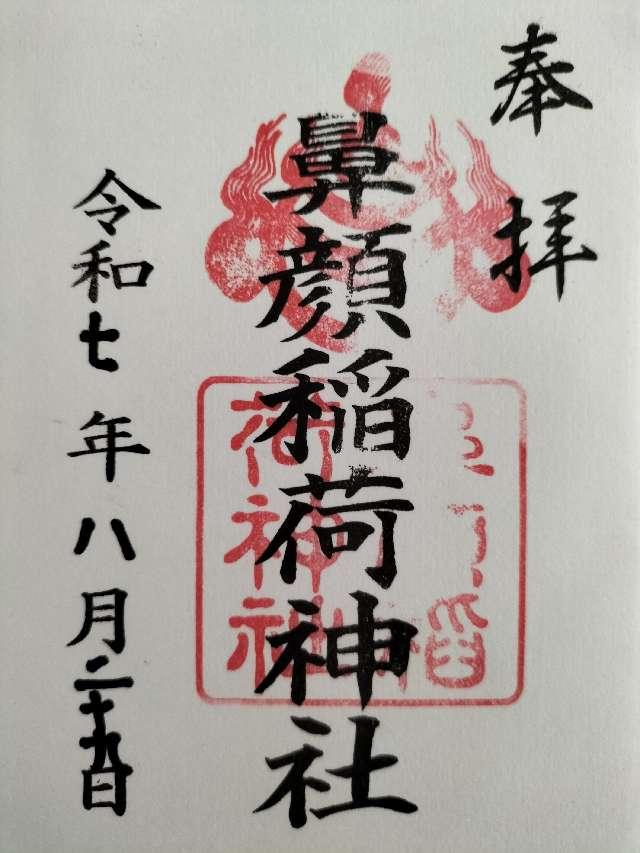 奉拝
鼻顔稲荷神社
令和七年八月二十九日
稲
荷神社